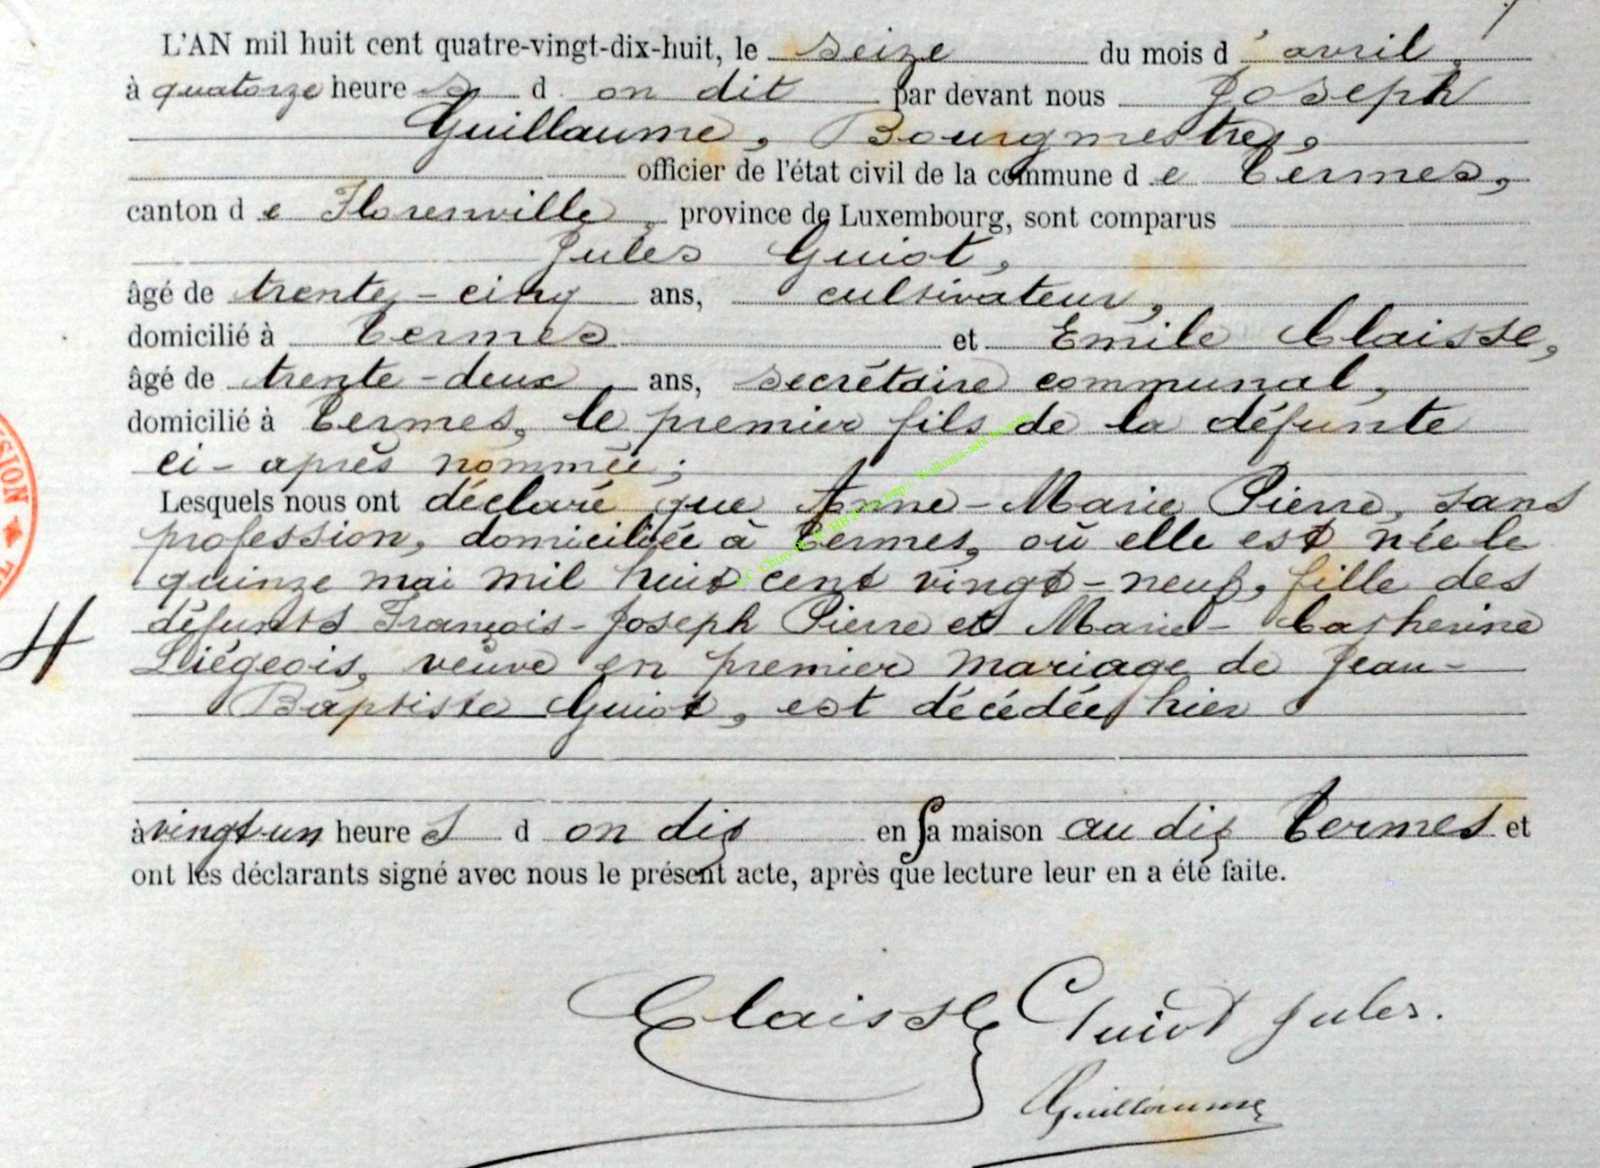 L'AN mil huit cent quatre-vingt-dix-huit, le seize du mois d'avril,
à quatorze heure s d on dit par devant nous Joseph
Guillaume, Bourgmestre,
officier de l'état civil de la commune d e Termes,
canton d e Florenville, province de Luxembourg, sont comparus
Jules Guiot,
âgé de trente-cinq ans, cultivateur,
domicilié à Termes et Emile Claisse,
âgé de trente-deux ans, secrétaire communal,
domicilié à Termes, le premier fils de la défunte
ci-après nommée;
Lesquels nous ont déclaré que Anne-Marie Pierre, sans
profession, domiciliée à Termes, où elle est née le
quinze mai mil huit cent vingt-neuf, fille des
défunts François-Joseph Pierre et Marie-Catherine
4
Liégeois, veuve en premier mariage de Jean-
Baptiste Guiot, est décédée hier
à vingt-un heure s d on dit en sa maison au dit Termes et
ont les déclarants signé avec nous le présent acte, après que lecture leur en a été faite.
Claisse Guiot Jules.
Guillaume
SION